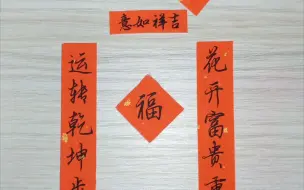 吉祥如意
花开富贵
福
运转乾坤